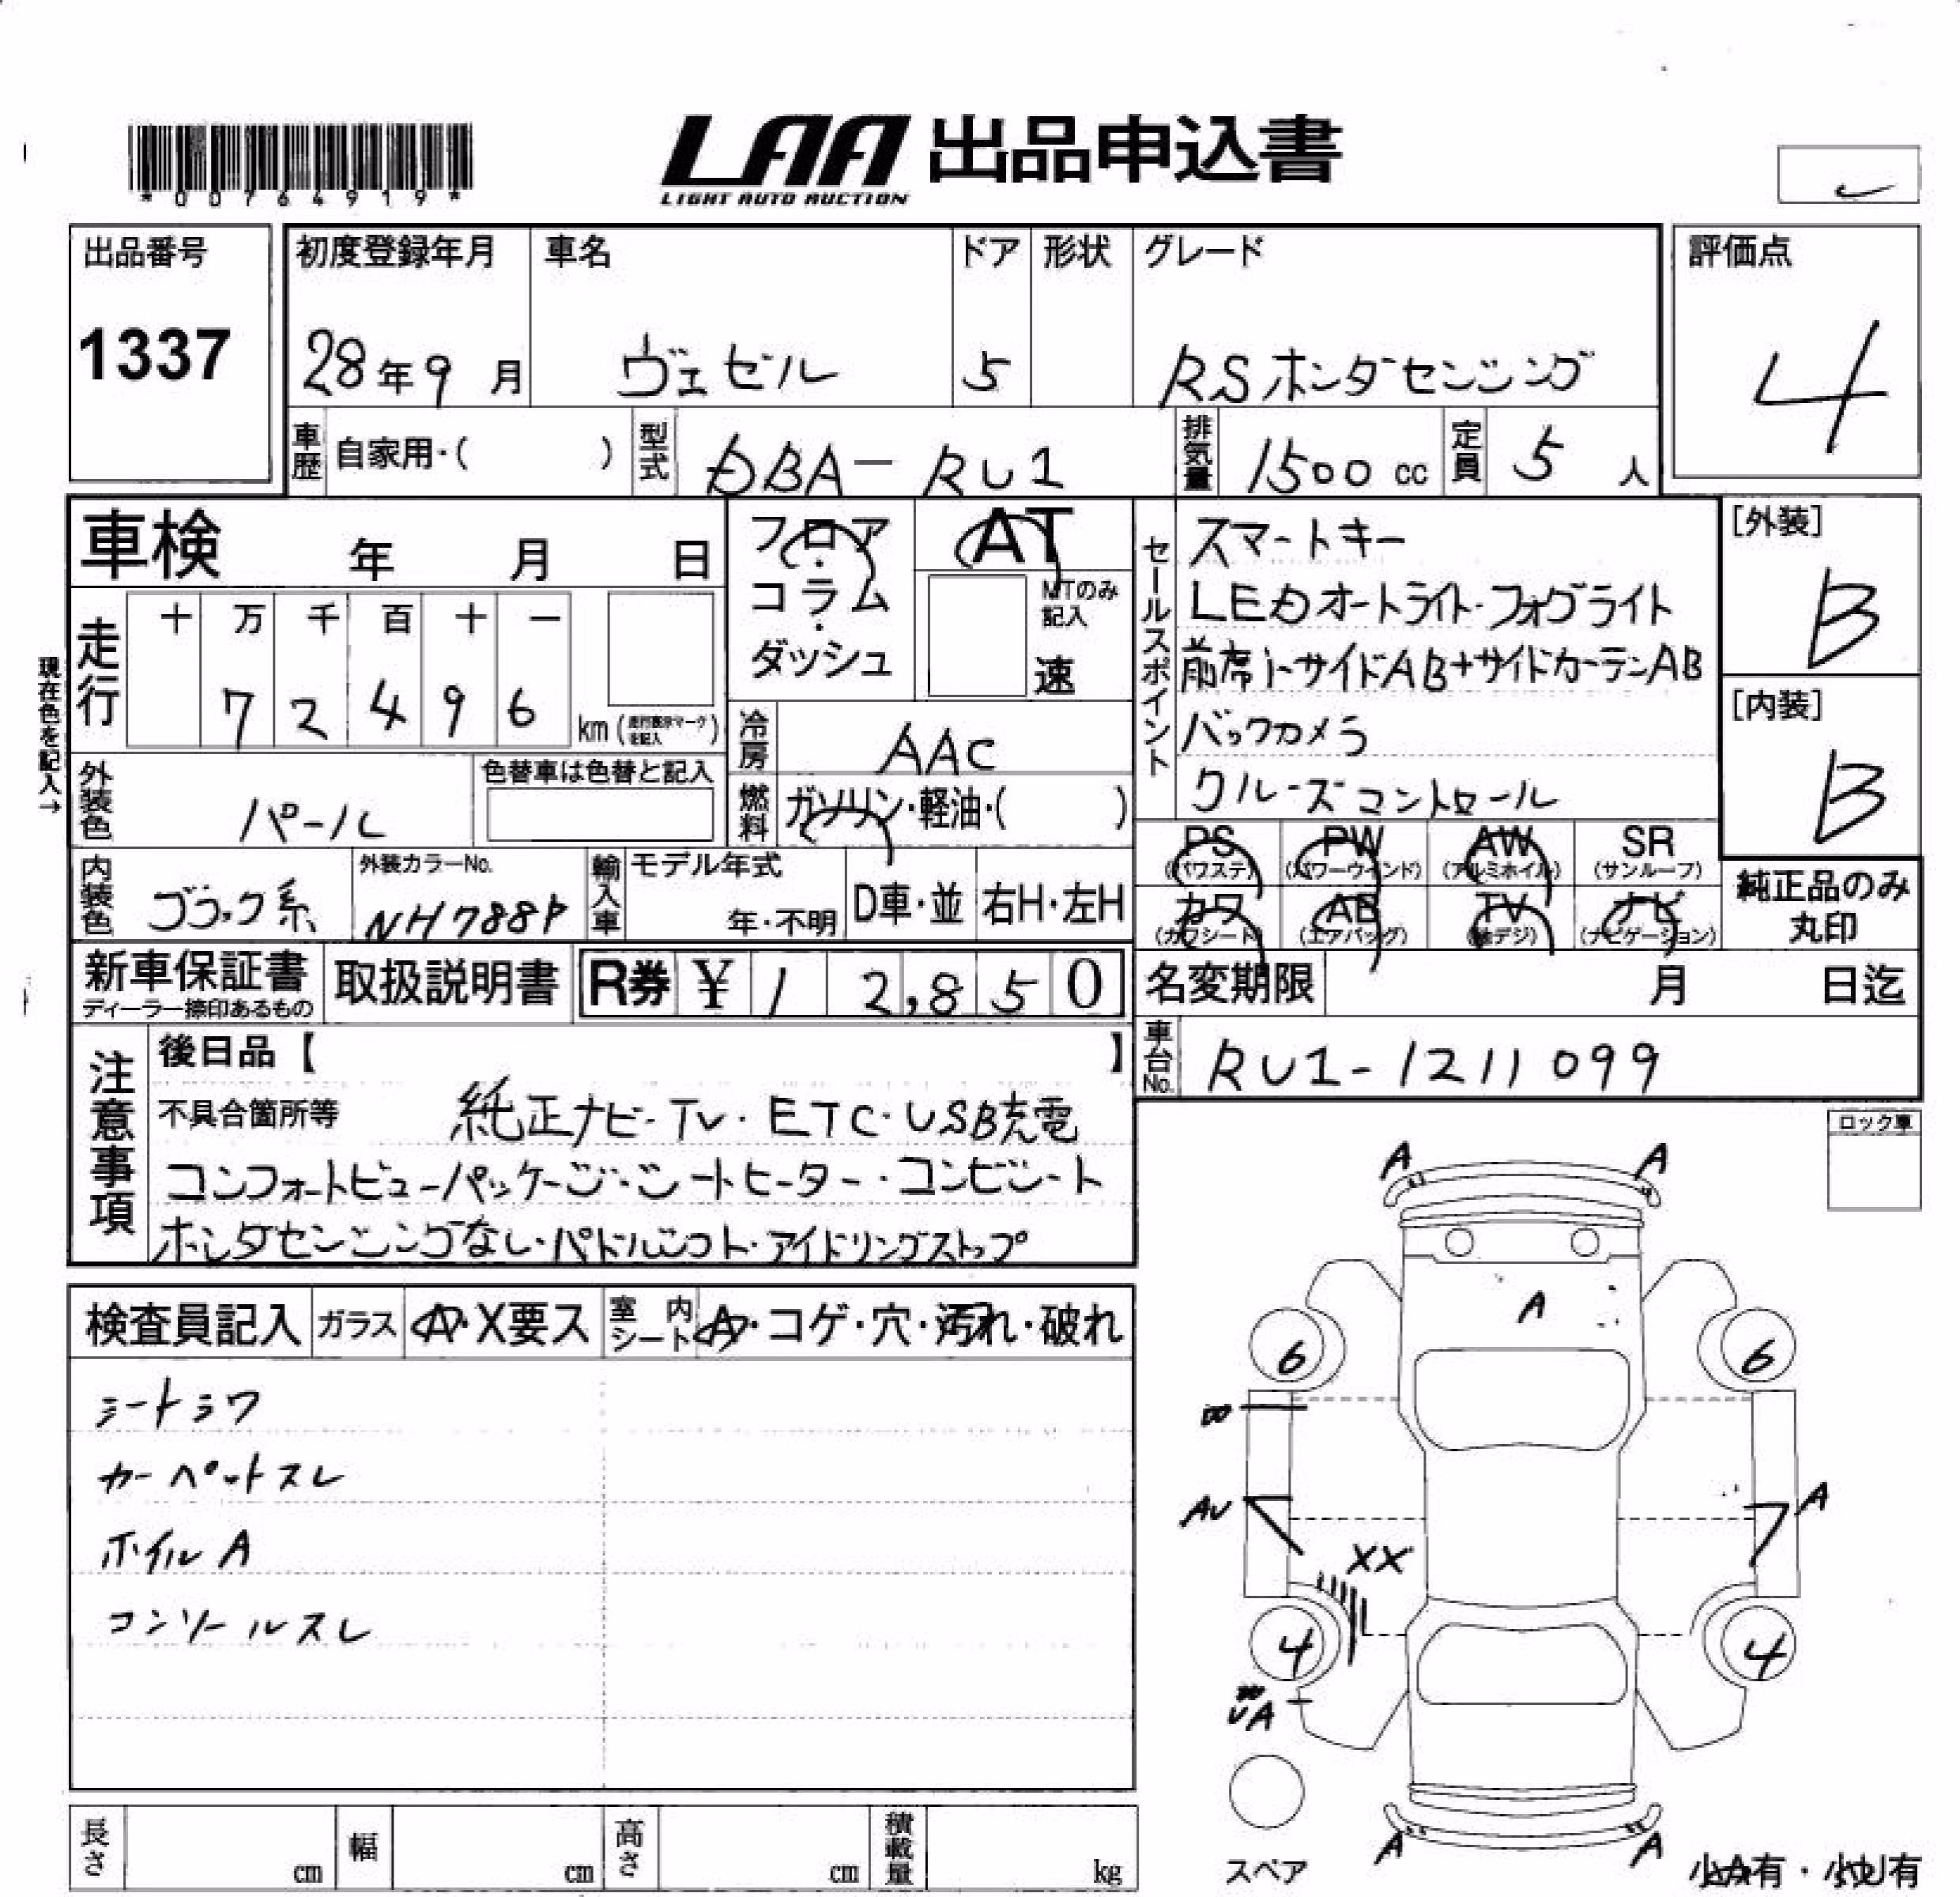 *00764919*
LAA 出品申込書
LIGHT AUTO AUCTION
出品番号
1337
初度登録年月 車名 ドア 形状 グレード
28年9月 ヴェゼル 5 RSホンダセンシング
評価点
4
車歴 自家用・( ) 型式 DBA-RU1 排気量 1500cc 定員 5人
車検 年 月 日
フロア・コラム・ダッシュ
AT
MTのみ記入
速
セールスポイント
スマートキー
LEDオートライト・フォグライト
前席i-サイドAB+サイドカーテンAB
バックカメラ
クルーズコントロール
[外装]
B
[内装]
B
現在色を記入→
走行 十 万 千 百 十 一
7 2 4 9 6 km(走行表示マークを記入)
冷房 AAC
外装色 パール 色替車は色替と記入
燃料 ガソリン・軽油・( )
PS(パワステ) PW(パワーウインド) AW(アルミホイル) SR(サンルーフ)
内装色 ブラック系 外装カラーNo. NH788P 輸入車 モデル年式 年・不明 D車・並 右H・左H
カワ(カワシート) AB(エアバッグ) TV(地デジ) ナビ(ナビゲーション)
純正品のみ丸印
新車保証書
ディーラー捺印あるもの
取扱説明書 R券 ¥ 1 2,8 5 0
名変期限 月 日迄
車台No. RU1-1211099
注意事項
後日品【 】
不具合箇所等 純正ナビ・TV・ETC・USB充電
コンフォートビューパッケージ・シートヒーター・コンビシート
ホンダセンシングなし・パドルシフト・アイドリングストップ
ロック車
検査員記入 ガラス A・X要ス 室内シート A・コゲ・穴・汚れ・破れ
シートシワ
カーペットスレ
ホイルA
コンソールスレ
A A
A
6 6
AU A
XX
4 4
UA
A A
スペア
小A有・小U有
長さ cm 幅 cm 高さ cm 積載量 kg